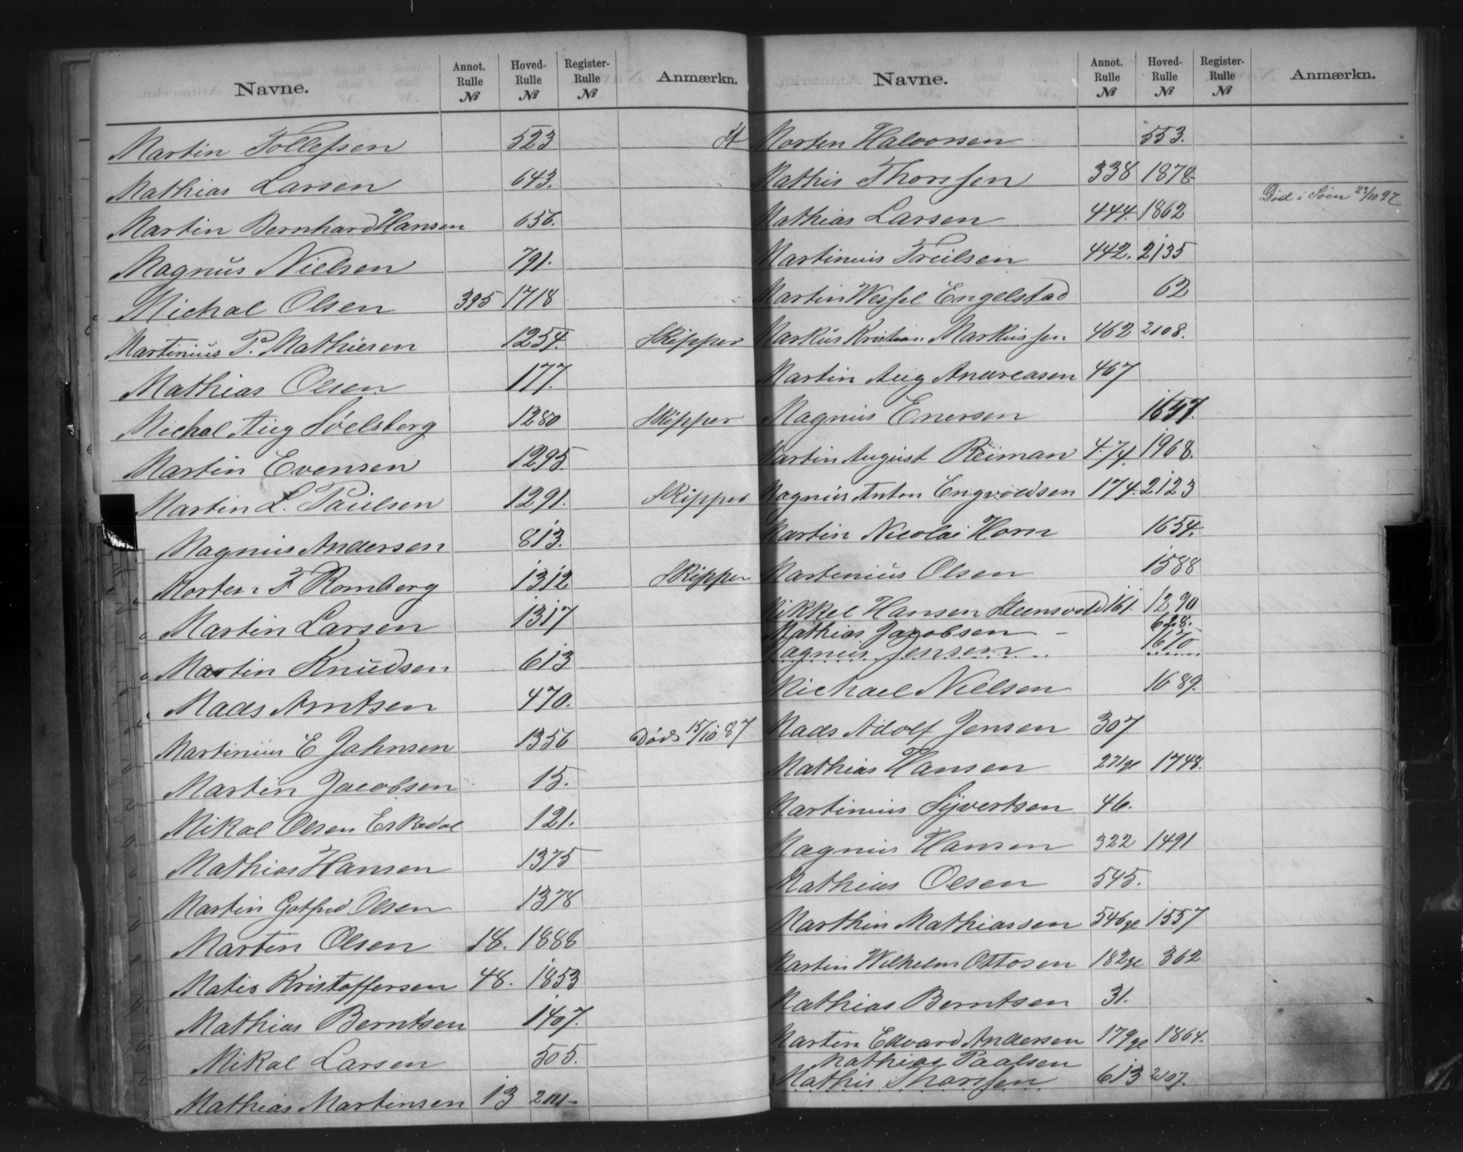 Navne. Annot. Rulle № Hoved- Rulle № Register- Rulle № Anmærkn.
Martin Tollefsen 523
Mathias Larsen 643.
Martin Bernhard Hansen 656.
Magnus Nielsen 791.
Michal Olsen 395 1718
Martinius P. Mathiesen 1254. Skipper
Mathias Olsen 177.
Michal Aug Söelsberg 1280 Skipper
Martin Evensen 1295.
Martin L. Paulsen 1291. Skipper
Magnus Andersen 813.
Morten F Romberg 1312 Skipper
Martin Larsen 1317
Martin Knudsen 613
Mads Arntsen 470.
Martinius E Jahnsen 1356 Död 15/10 87
Martin Jacobsen 15.
Mikal Olsen Eskedal 121.
Mathias Hansen 1375
Martin Gotfred Olsen 1378
Martin Olsen 18. 1888
Matis Kristoffersen 48. 1853
Mathias Berntsen 1407.
Mikal Larsen 505.
Mathias Martinsen 13 2111-
Navne. Annot. Rulle № Hoved- Rulle № Register- Rulle № Anmærkn.
Morten Halvorsen 553.
Mathis Thorssen 338 1878.
Mathias Larsen 444. 1862 Död i Söen 23/10 97
Martinius Truilsen 442. 2135
Martin Wessel Engelstad 62
Markus Kristian Markussen 462 2108.
Martin Aug Andreasen 467
Magnus Enersen 1657.
Martin August Reiman 474. 1968.
Magnus Anton Engvoldsen 174. 2123
Martin Nicolai Horn 1654.
Martenius Olsen 1588
Mikkel Hansen Steensvold 161. 1290
Mathias Jacobsen - 628.
Magnus Jensen. 1670
Michael Nielsen 1689.
Mads Adolf Jensen 307
Mathias Hansen 271 gl 1748.
Martinius Syvertsen 46.
Magnus Hansen 322 1491
Mathias Olsen 545.
Marthin Mathiassen 546 gl 1557
Martin Wilhelm Ottosen 182 gl 362
Mathias Berntsen 31.
Martin Edvard Andersen 179 gl 1864.
Mathias Paalsen
Mathis Thorssen 613 2107.